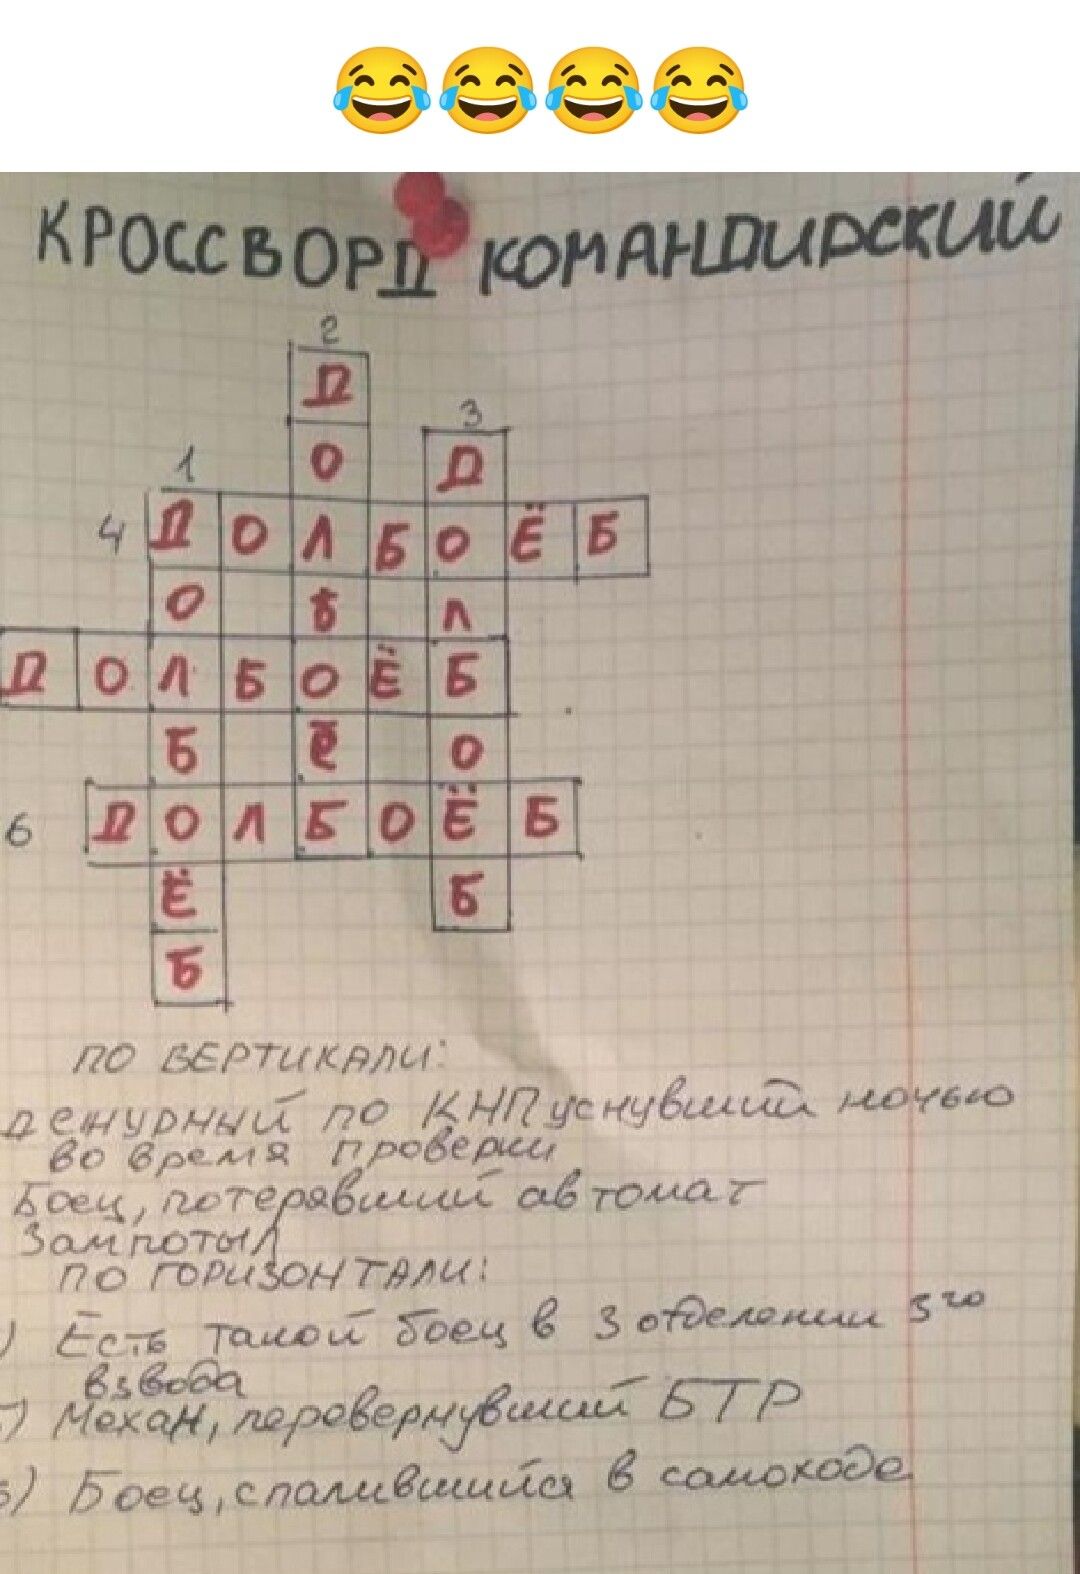 КРОССВОРД КОМАНДИРСКИЙ
2
Д
3
О Д
1
4 ДОЛБОЁБ
О Ь Л
ДОЛБОЁБ
Б Ё О
6 ДОЛБОЁБ
Ё Б
Б
ПО ВЕРТИКАЛИ:
ДЕЖУРНЫЙ ПО КНП уснувший ночью
во время проверки
Боец, потерявший автомат
Зампотыл
ПО ГОРИЗОНТАЛИ:
) Есть такой боец в 3 отделении 3го
взвода
) Механ, перевернувший БТР
) Боец, спалившийся в самоходе